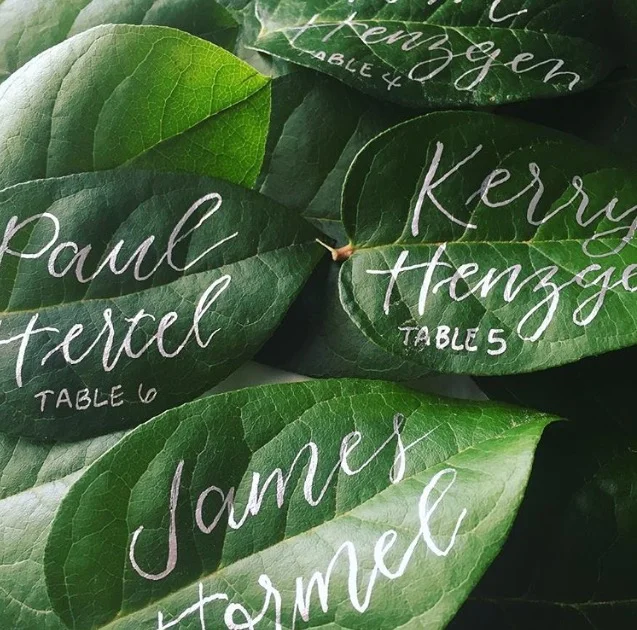 Henzgen
TABLE 4
Kerry
Henzge
TABLE 5
Paul
Hertel
TABLE 6
James
Hormel